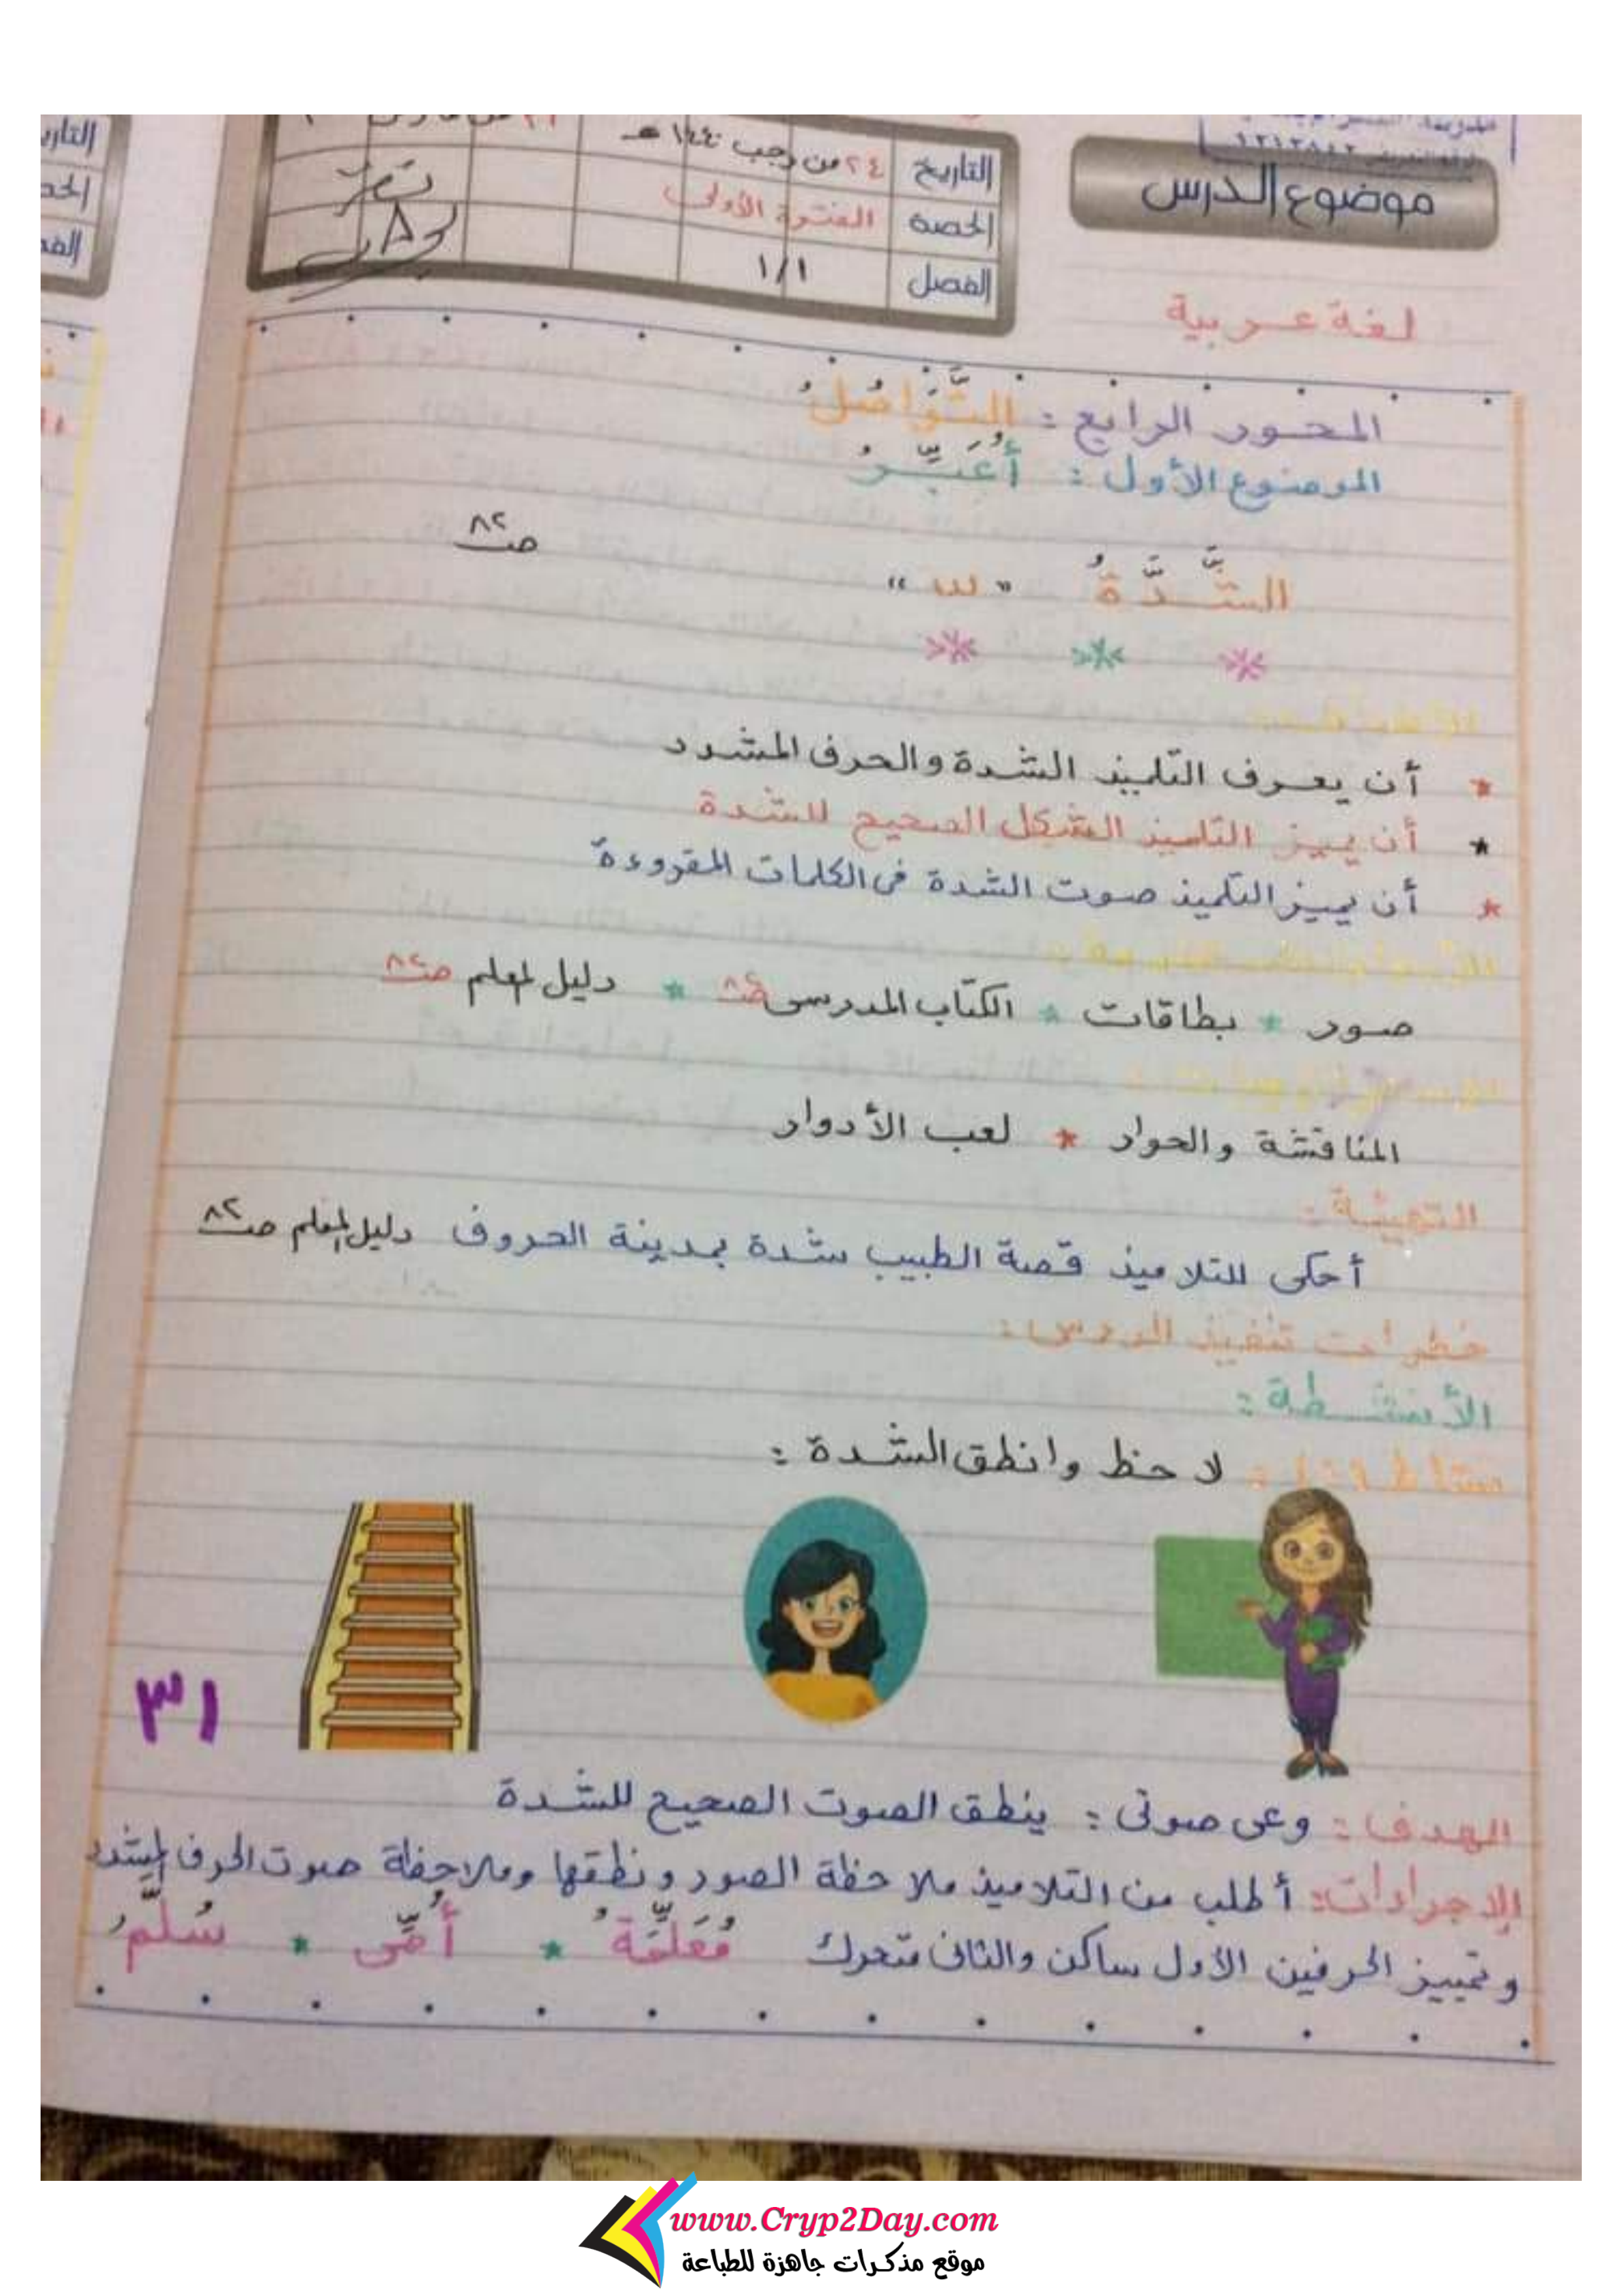 موضوع الدرس
لغة عربية
التاريخ ٢٤ من رجب ١٤٤٠ هـ
الحصة الفترة الأولى
الفصل ١/١
المحور الرابع : التَّوَاصُلُ
الموضوع الأول : أُعَبِّرُ
ص٨٢
الشَّدَّةُ " ّ "
* * *
الأهداف :
* أن يعرف التلميذ الشدة والحرف المشدد
* أن يميز التلميذ الشكل الصحيح للشدة
* أن يميز التلميذ صوت الشدة فى الكلمات المقروءة
صور * بطاقات * الكتاب المدرسى ص٨٢ * دليل المعلم ص٨٢
الاستراتيجيات :
المناقشة والحوار * لعب الأدوار
التهيئة :
أحكى للتلاميذ قصة الطبيب شدة بمدينة الحروف دليل المعلم ص٨٢
خطوات تنفيذ الدرس :
الأنشطة :
نشاط ١ : لاحظ وانطق الشدة :
٣١
الهدف : وعى صوتى : ينطق الصوت الصحيح للشدة
الإجراءات : أطلب من التلاميذ ملاحظة الصور ونطقها وملاحظة صوت الحرف المشدد
وتمييز الحرفين الأول ساكن والثانى متحرك مُعَلِّمَةُ * أُمِّى * سُلَّمُ
التاريخ
الحصة
www.Cryp2Day.com
موقع مذكرات جاهزة للطباعة